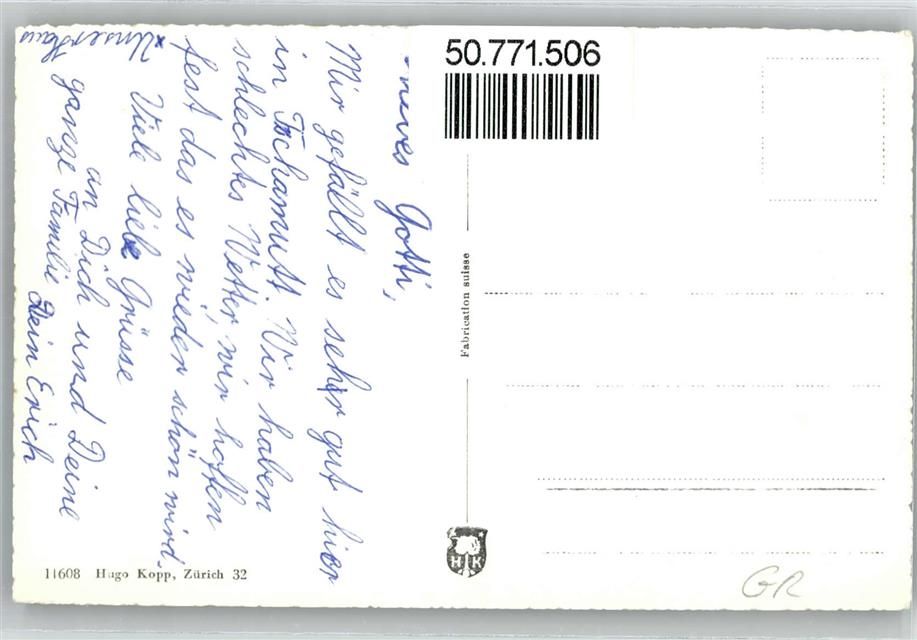 Gotti,
Mir gefällt es sehr gut hier
in Tschamutt. Wir haben
schlechtes Wetter, wir hoffen
fest das es wieder schön wird.
Viele liebe Grüsse
an Dich und Deine
ganze Familie Dein Erich
*Unser Haus
50.771.506
Fabrication suisse
HK
11608 Hugo Kopp, Zürich 32
GR